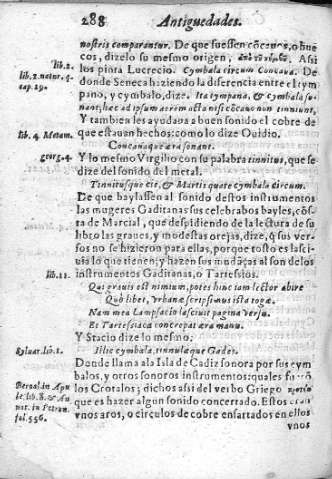 288 Antiguedades.
nostris comparantur. De que fuessen cōcauos, o hue
cos, dizelo su mesmo origen, Assi
lib.2. los pinta Lucrecio. Cymbala circum Concaua. De
lib.2.natur.q. donde Seneca haziendo la diferencia entre el tym
cap.29. pano, y cymbalo, dize. Ita tympana, & cymbala so-
nant, hac ad ipsum aerem nisi cōcaua non tinniunt,
Y tambien les ayudaua a buen sonido el cobre de
lib. 4. Metam. que estauan hechos: como lo dize Ouidio.
Concauaque æra sonant.
georg.4. Y lo mesmo Virgilio con su palabra tinnitus, que se
dize del sonido del metal.
Tinnitusque cie, & Martis quate cymbala circum.
De que baylassen al sonido destos instrumentos
las mugeres Gaditanas sus celebrabos bayles, cōs-
ta de Marcial, que despidiendo de la lectura de su
libro las graues, y modestas orejas, dize, q̃ sus ver-
sos no se hizieron para ellas, porque todo es lasci-
uia lo que tienen, y hazen sus mudāças al son de los
lib.11. instrumentos Gaditanos, o Tartessios.
Qui grauis est nimium, potes hinc iam lector abire
Quò libet, vrbanæ scripsimus ista togæ.
Nam mea Lampsacio lasciuit pagina versu.
Et Tartessiaca concrepat æra manu.
Y Stacio dize lo mesmo.
Syluar.lib.1. Illic cymbala, tinnulæque Gades.
Donde llama a la Isla de Cadiz sonora por sus cym
balos, y otros sonoros instrumentos: quales fuerō
Beroal. in Apu los Crotalos; dichos assi del verbo Griego
le. lib.8. & Au que es hazer algun sonido concertado. Estos
not. in Petron. vnos aros, o circulos de cobre ensartados en ellos
fol.556. vnos